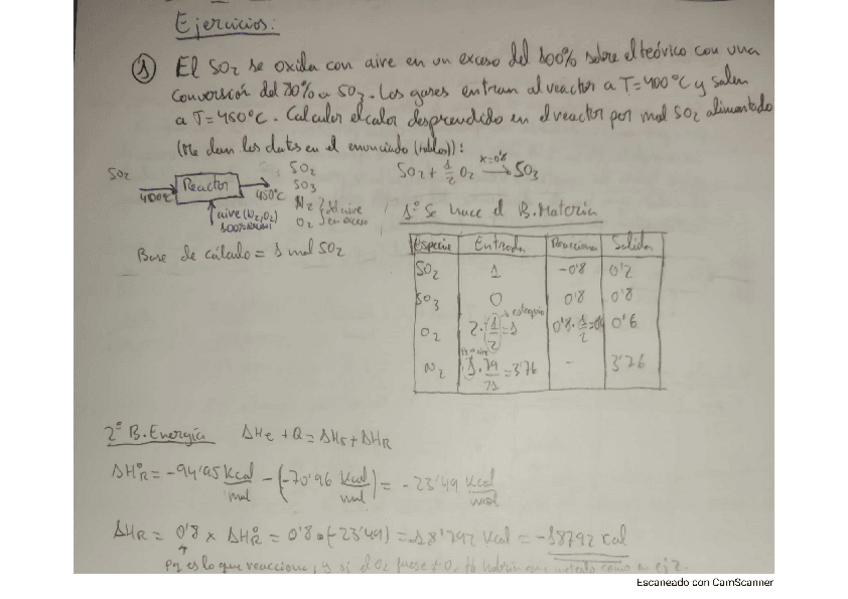 Ejercicios:
① El SO2 se oxida con aire en un exceso del 100% sobre el teórico con una
conversión del 80% a SO3. Los gases entran al reactor a T=400°C y salen
a T=450°C. Calcular el calor desprendido en el reactor por mol SO2 alimentado
(Me dan los datos en el enunciado (tablas)):
SO2
400°C
Reactor
450°C
SO2
SO3
N2
O2
del aire
en exceso
aire (N2,O2)
SO2 + 1/2 O2 → SO3
x=0'8
Base de cálculo = 1 mol SO2
1º Se hace el B.Materia
Especie Entrada Reacciona Salida
SO2 1 -0'8 0'2
SO3 0 0'8 0'8
O2 2·(1/2)=1 0'8·1/2=0'4 0'6
N2 1·79/21=3'76 - 3'76
2º B.Energía ΔHe + Q = ΔHs + ΔHR
ΔH°R = -94'45 Kcal/mol - (-70'96 Kcal/mol) = -23'49 Kcal/mol
ΔHR = 0'8 x ΔH°R = 0'8·(-23'49) = -18'792 Kcal = -18792 cal
Pq es lo que reacciona, y si el O2 fuese
Escaneado con CamScanner